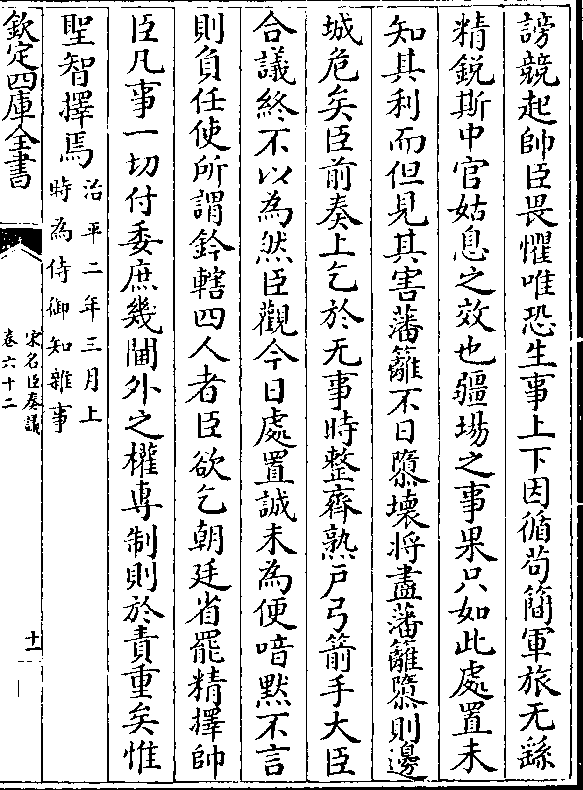 謗競起帥臣畏懼唯恐生事上下因循苟簡軍旅无繇
精鋭斯中官姑息之效也疆埸之事果只如此處置未
知其利而但見其害藩籬不日隳壞將盡藩籬隳則邊
城危矣臣前奏上乞於无事時整齊熟戸弓箭手大臣
合議終不以為然臣觀今日處置誠未為便喑默不言
則負任使所謂鈐轄四人者臣欲乞朝廷省罷精擇帥
臣凡事一切付委庶幾閫外之權專制則於責重矣惟
聖智擇焉
治平二年三月上
時為侍御知雜事
欽定四庫全書
宋名臣奏議
卷六十二
十一